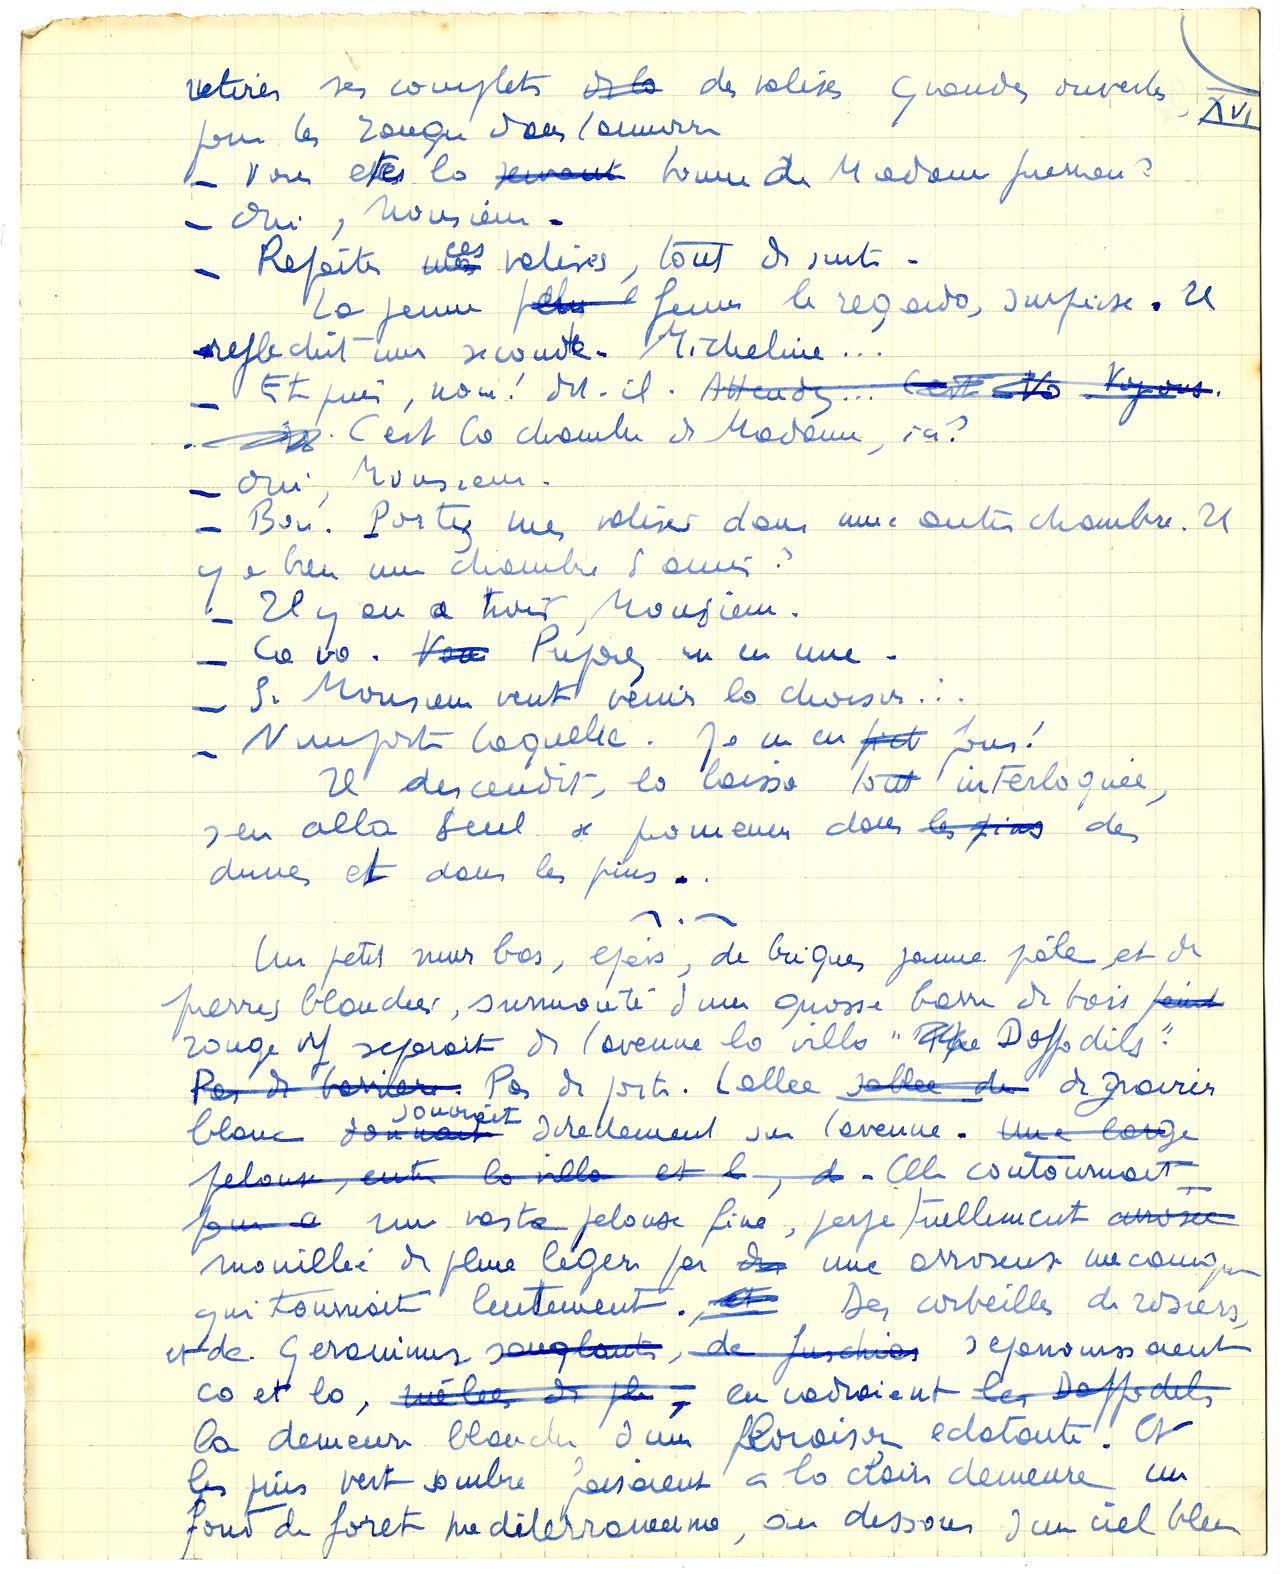 retirer ses complets de la des valises grandes ouvertes, XVI
pour les ranger dans l'armoire
– Vous etes la servant bonne de Madame
– Oui, Monsieur.
– Refaites mes ces valises, tout de suite.
La jeune femme le regarda, surprise. Il
reflechit une seconde. Micheline...
– Et puis, non! dit-il. Attendez... C'est Vo Voyons.
C'est la chambre de Madame, ici?
– Oui, Monsieur.
– Bon. Portez mes valises dans une autre chambre. Il
y a bien une chambre d'amis?
– Il y en a trois, Monsieur.
– Ca va. Vou Preparez m'en une.
– Si Monsieur veut venir la choisir...
– N'importe laquelle. Je m'en fous!
Il descendit, la laissa tout interloquée,
s'en alla seul se promener dans les pins des
dunes et dans les pins..
Un petit mur bas, epais, de briques jaune pâle et de
pierres blanches, surmonté d'une grosse barre de bois peint
rouge vif separait de l'avenue la villa "The Daffodils".
Pas de barriere. Pas de porte. L'allee sablee de de gravier
blanc donnait s'ouvrait directement sur l'avenue. Une large
pelouse, entre la villa et l, d. Elle contournait,
pour a une vaste pelouse fine, perpetuellement arrosee
mouillée de pluie legere par des une arroseuse mecanique
qui tournait lentement., et Des corbeilles de rosiers,
et de geraniums sanglants, de fuschias s'epanouissaient
ca et la, mêlees de encadraient les Daffodils
la demeure blanche d'une floraison eclatante. Et
les pins vert sombre faisaient a la claire demeure un
fond de foret mediterraneenne, au dessous d'un ciel bleu